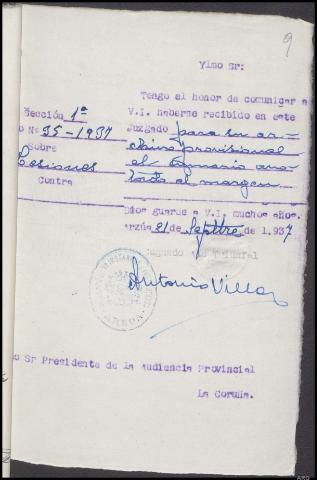 9
Ylmo Sr:
Tengo el honor de comunicar a
V.I. haberse recibido en este
Juzgado para su ar-
chivo provisional
el sumario ano-
tado al margen
Sección 1ª
o Nº 35-1937
sobre
Lesiones
Contra
Dios guarde a V.I. muchos años.
Arzúa 21 de Septbre de 1.937
Antonio Villar
ARZUA
o Sr Presidente de la Audiencia Provincial
La Coruña.